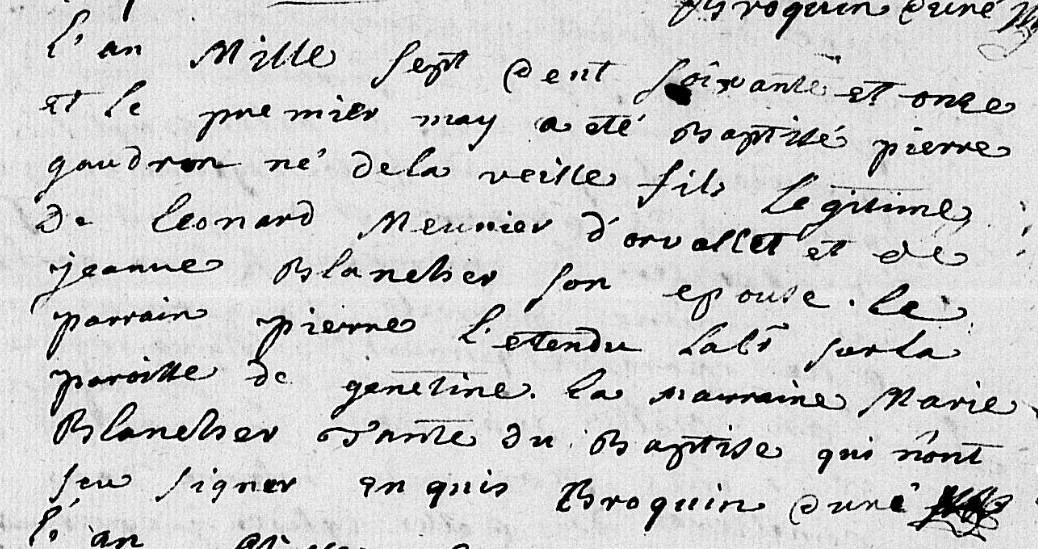 Broquin curé
l'an Mille sept cent soixante et onze
et le premier may a eté Baptisé pierre
gaudron né dela veille fils Legitime
De Leonard Meunier d'orvallet et de
jeanne Blancher son epouse. le
parrain pierre l'etendu labr sur la
paroisse de genetine. la marraine Marie
Blancher Tante du Baptise qui n'ont
seu signer enquis Broquin curé
l'an